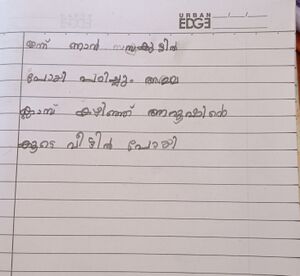 URBAN
EDGE
ഇന്ന് ഞാൻ
പോയി പഠിച്ചും അമ്മ
ക്ലാസ് കഴിഞ്ഞ്
കൂടെ വീട്ടിൽ പോയി